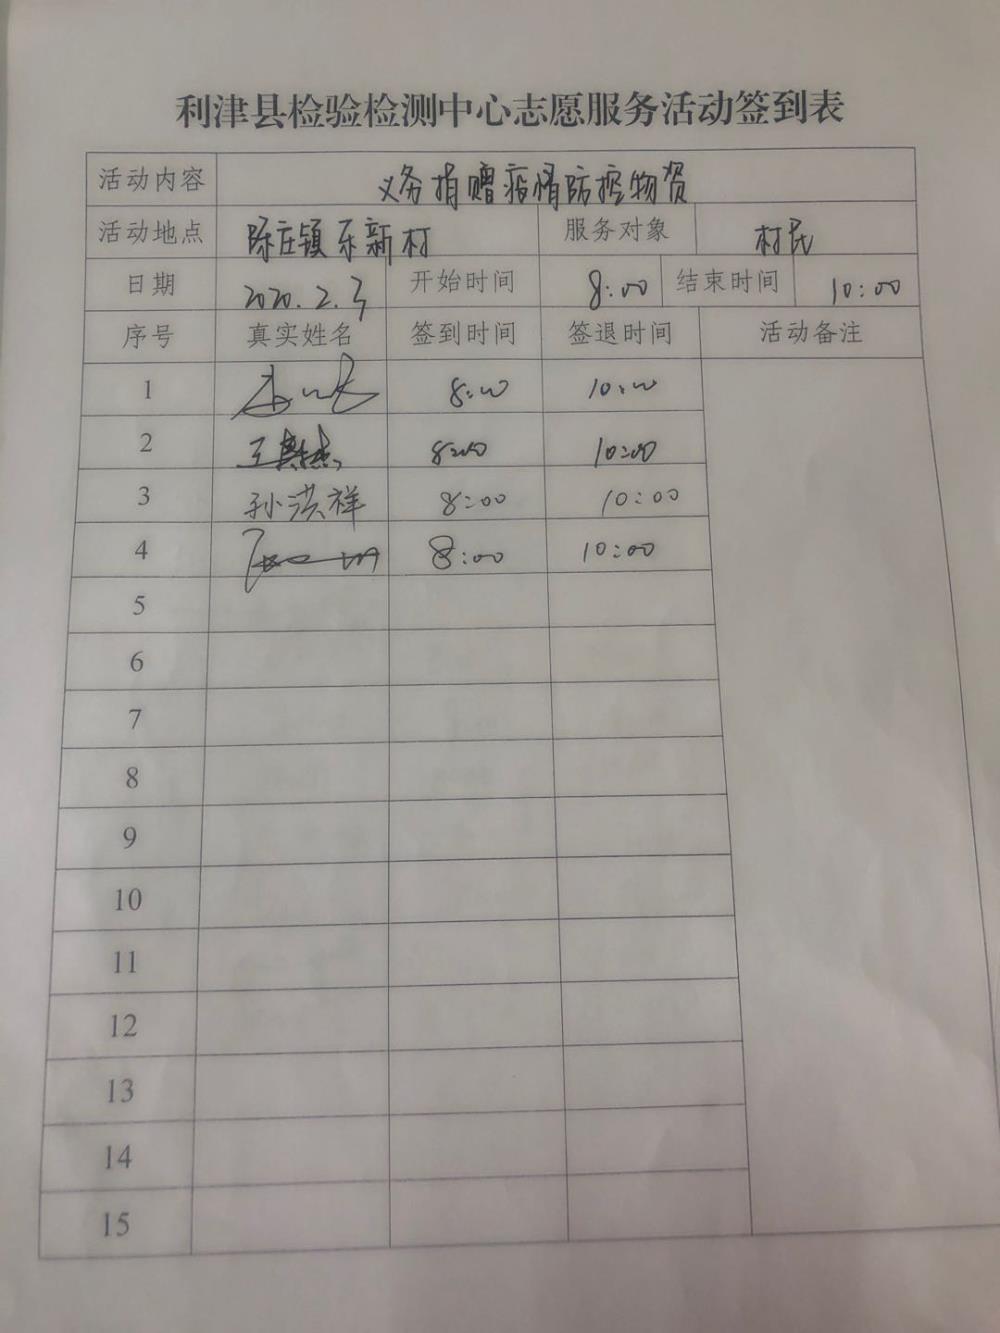 利津县检验检测中心志愿服务活动签到表
活动内容 义务捐赠疫情防控物资
活动地点 陈庄镇东新村 服务对象 村民
日期 2020.2.3 开始时间 8:00 结束时间 10:00
序号 真实姓名 签到时间 签退时间 活动备注
1 8:00 10:00
2 8:00 10:00
3 孙洪祥 8:00 10:00
4 8:00 10:00
5
6
7
8
9
10
11
12
13
14
15